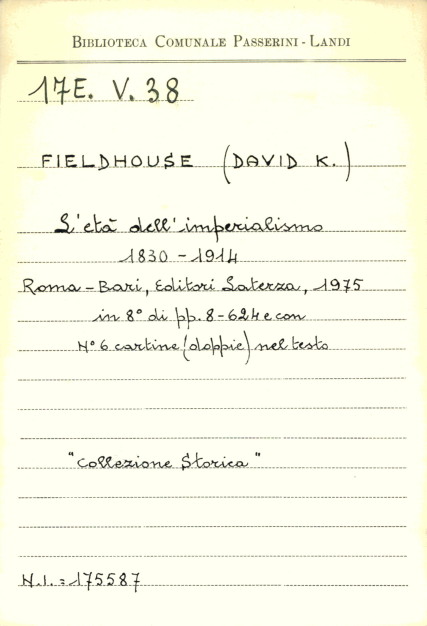 BIBLIOTECA COMUNALE PASSERINI - LANDI
17E. V. 38
FIELDHOUSE (DAVID K.)
L'età dell'imperialismo
1830 - 1914
Roma - Bari, Editori Laterza, 1975
in 8° di pp. 8-624 e con
N° 6 cartine (doppie) nel testo
"Collezione Storica"
N.I. = 175587